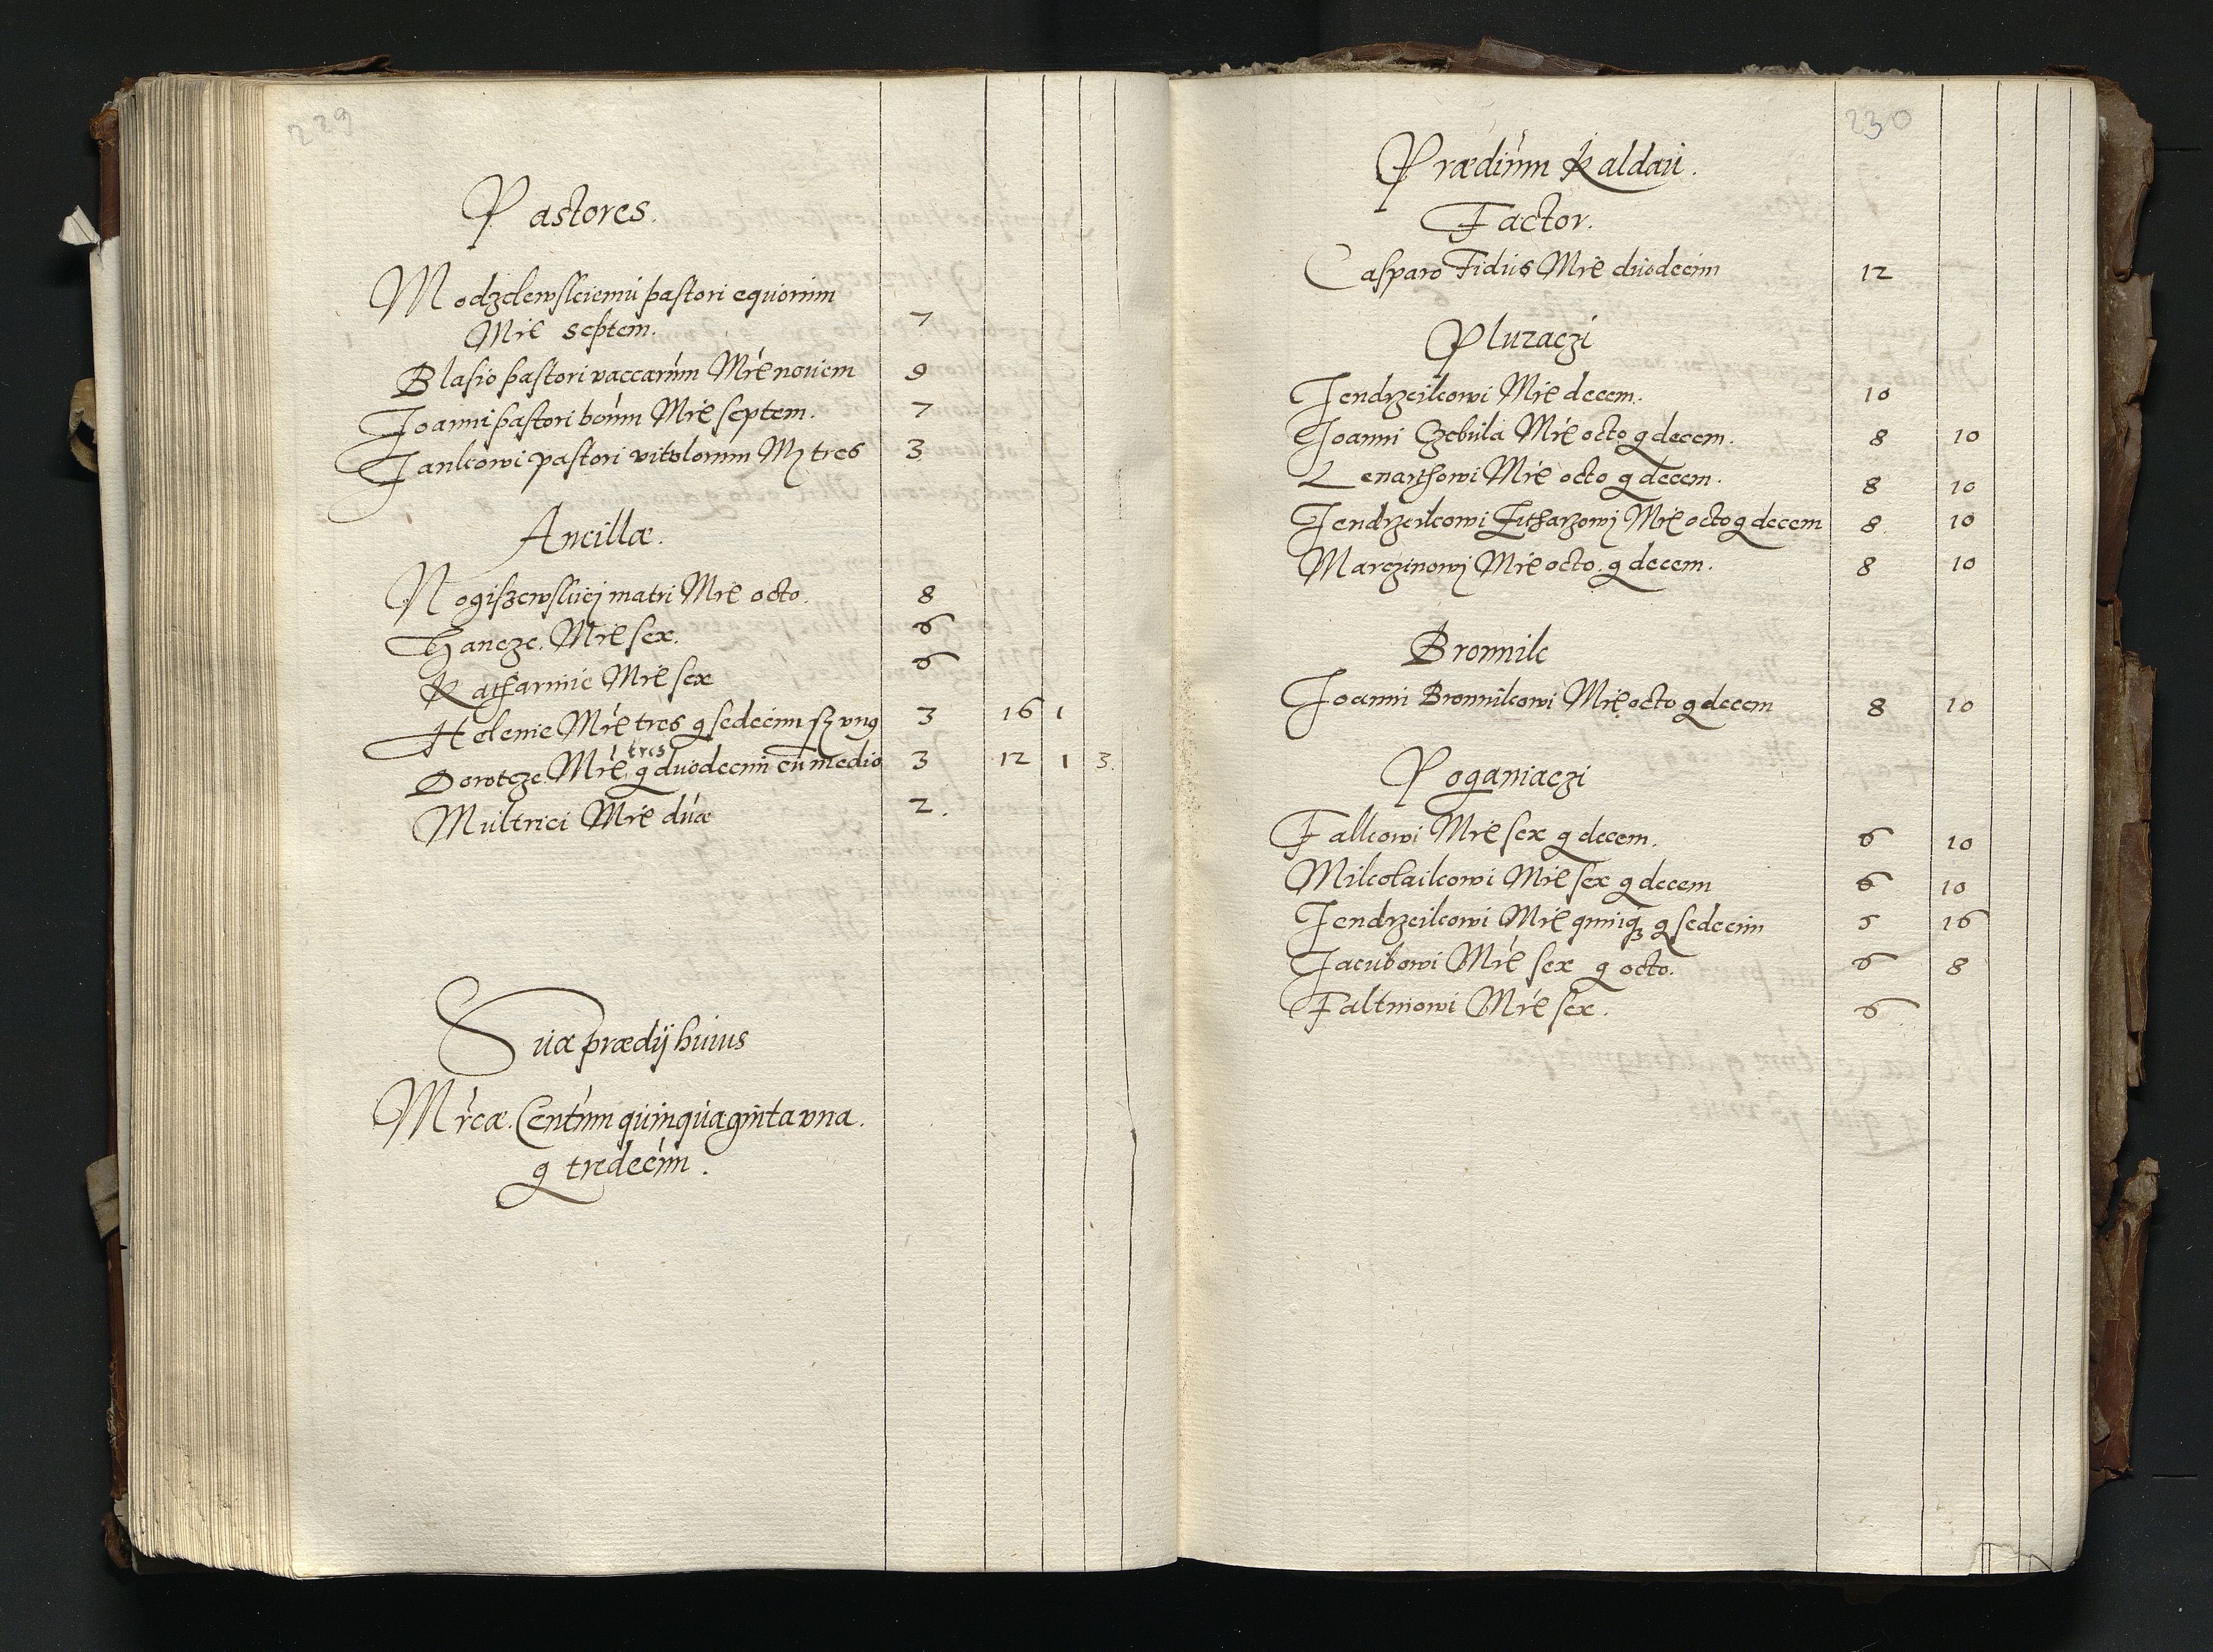 229
Pastores.
Modzelewskiemu pastori equorum
Mrc septem. 7
Blasio pastori vaccarum Mrc nouem 9
Joanni pastori boum Mrc septem. 7
Jankowi pastori vitulorum Mz tres 3
Ancillæ.
Nogiszewskiej matri Mrc octo. 8
Hancze. Mrc sex. 6
Katharinie Mrc sex 6
Helenie Mrc tres g sedecim sz vng 3 16 1
tres
Dorotcze. Mrc g duodecim cu medio 3 12 1 3.
Multrici Mrc duæ 2.
Sua prædij huius
Mrcæ. Centum quinquaginta vna.
g tredecim.
230
Prædium Kaldau.
Factor.
Casparo Fidus Mrc duodecim 12
Pluzaczi
Jendrzeikowi Mrc decem. 10
Joanni Czebula Mrc octo g decem. 8 10
Lenarthowi Mrc octo g decem. 8 10
Jendrzeikowi Litharzowj Mrc octo g decem 8 10
Marczinowj Mrc octo. g decem. 8 10
Bronnik
Joanni Bronnikowi Mrc octo g decem 8 10
Poganiaczi
Falkowi Mrc sex g decem. 6 10
Mikolaikowi Mrc sex g decem 6 10
Jendrzeikowi Mrc quinq3 g sedecim 5 16
Jacubowi Mrc sex g octo. 6 8
Faltinowi Mrc sex. 6